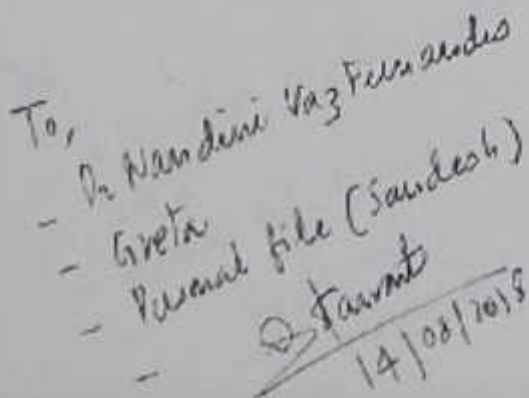 To,
- Dr Nandini Vaz Fernandes
- Greta
- Personal file (Sandesh)
-
14/08/2018